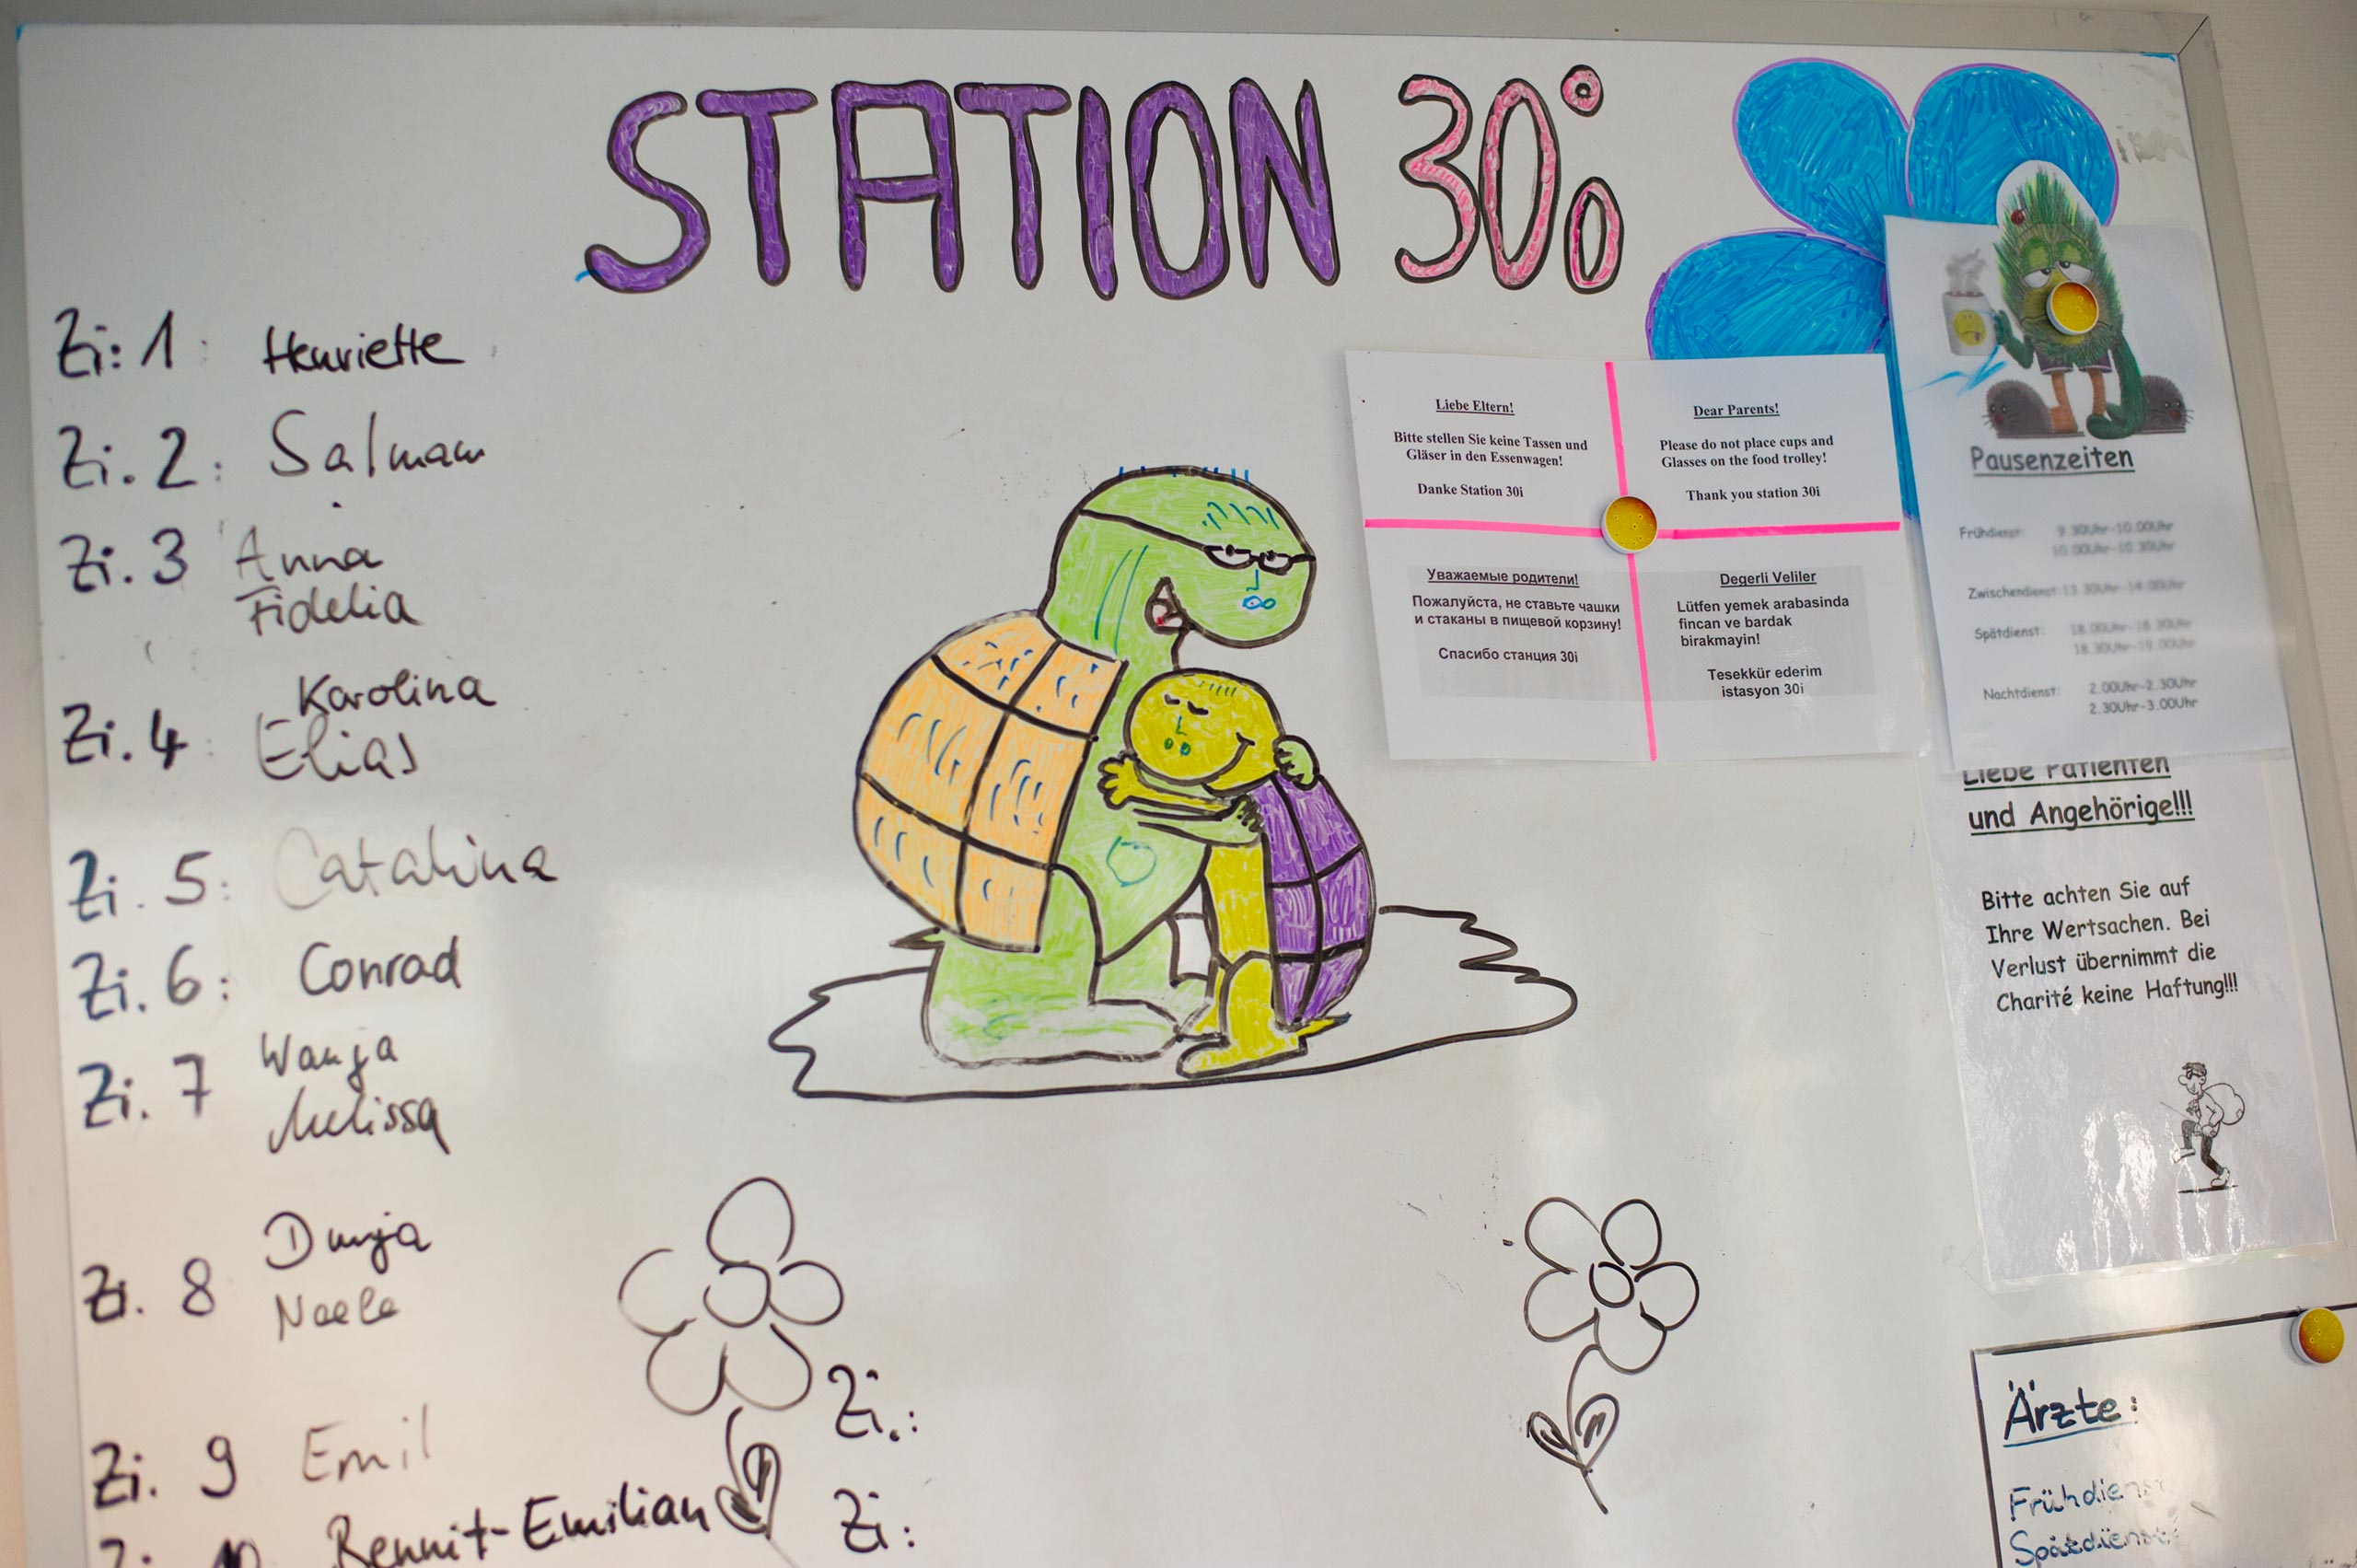 STATION 30i
Zi: 1: Henriette
Zi. 2: Salmam
Zi. 3 Anna
Fidelia
Karolina
Zi. 4: Elias
Zi. 5: Catalina
Zi. 6: Conrad
Wanja
Zi. 7
Melissa
Dunja
Zi. 8
Naele
Zi. 9 Emil
Zi. 10 Bennit-Emilian
Zi.:
Zi:
Liebe Eltern!
Bitte stellen Sie keine Tassen und
Gläser in den Essenwagen!
Danke Station 30i
Dear Parents!
Please do not place cups and
Glasses on the food trolley!
Thank you station 30i
Уважаемые родители!
Пожалуйста, не ставьте чашки
и стаканы в пищевой корзину!
Спасибо станция 30i
Degerli Veliler
Lütfen yemek arabasinda
fincan ve bardak
birakmayin!
Tesekkür ederim
istasyon 30i
Pausenzeiten
Frühdienst: 9.30Uhr-10.00Uhr
10.00Uhr-10.30Uhr
Zwischendienst:13.30Uhr-14.00Uhr
Spätdienst: 18.00Uhr-18.30Uhr
18.30Uhr-19.00Uhr
Nachtdienst: 2.00Uhr-2.30Uhr
2.30Uhr-3.00Uhr
Liebe Patienten
und Angehörige!!!
Bitte achten Sie auf
Ihre Wertsachen. Bei
Verlust übernimmt die
Charité keine Haftung!!!
Ärzte:
Frühdienst
Spätdienst: